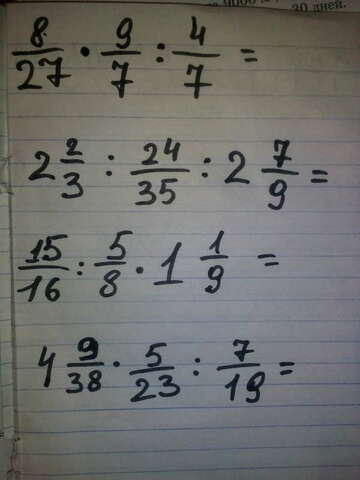 30 дней.
8/27 · 9/7 : 4/7 =
2 2/3 : 24/35 : 2 7/9 =
15/16 : 5/8 · 1 1/9 =
4 9/38 · 5/23 : 7/19 =